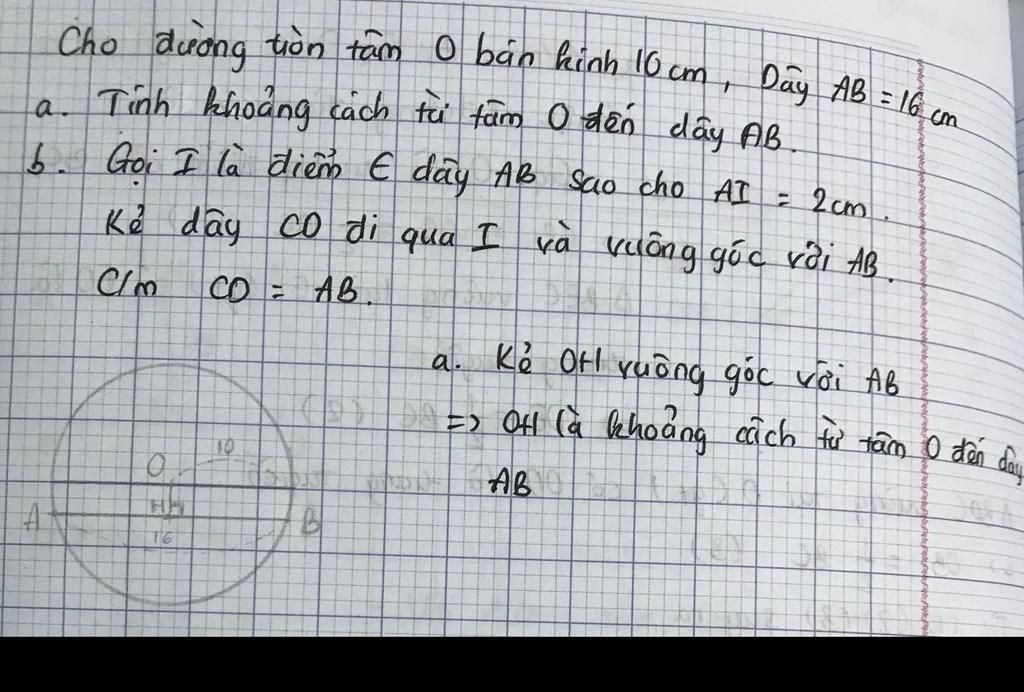 Cho đường tròn tâm O bán kính 10 cm, Dây AB = 16 cm
a. Tính khoảng cách từ tâm O đến dây AB.
b. Gọi I là điểm ∈ dây AB sao cho AI = 2cm.
Kẻ dây CD đi qua I và vuông góc với AB.
C/m CD = AB.
a. Kẻ OH vuông góc với AB
=> OH là khoảng cách từ tâm O đến dây
AB
O 10
A H B
16